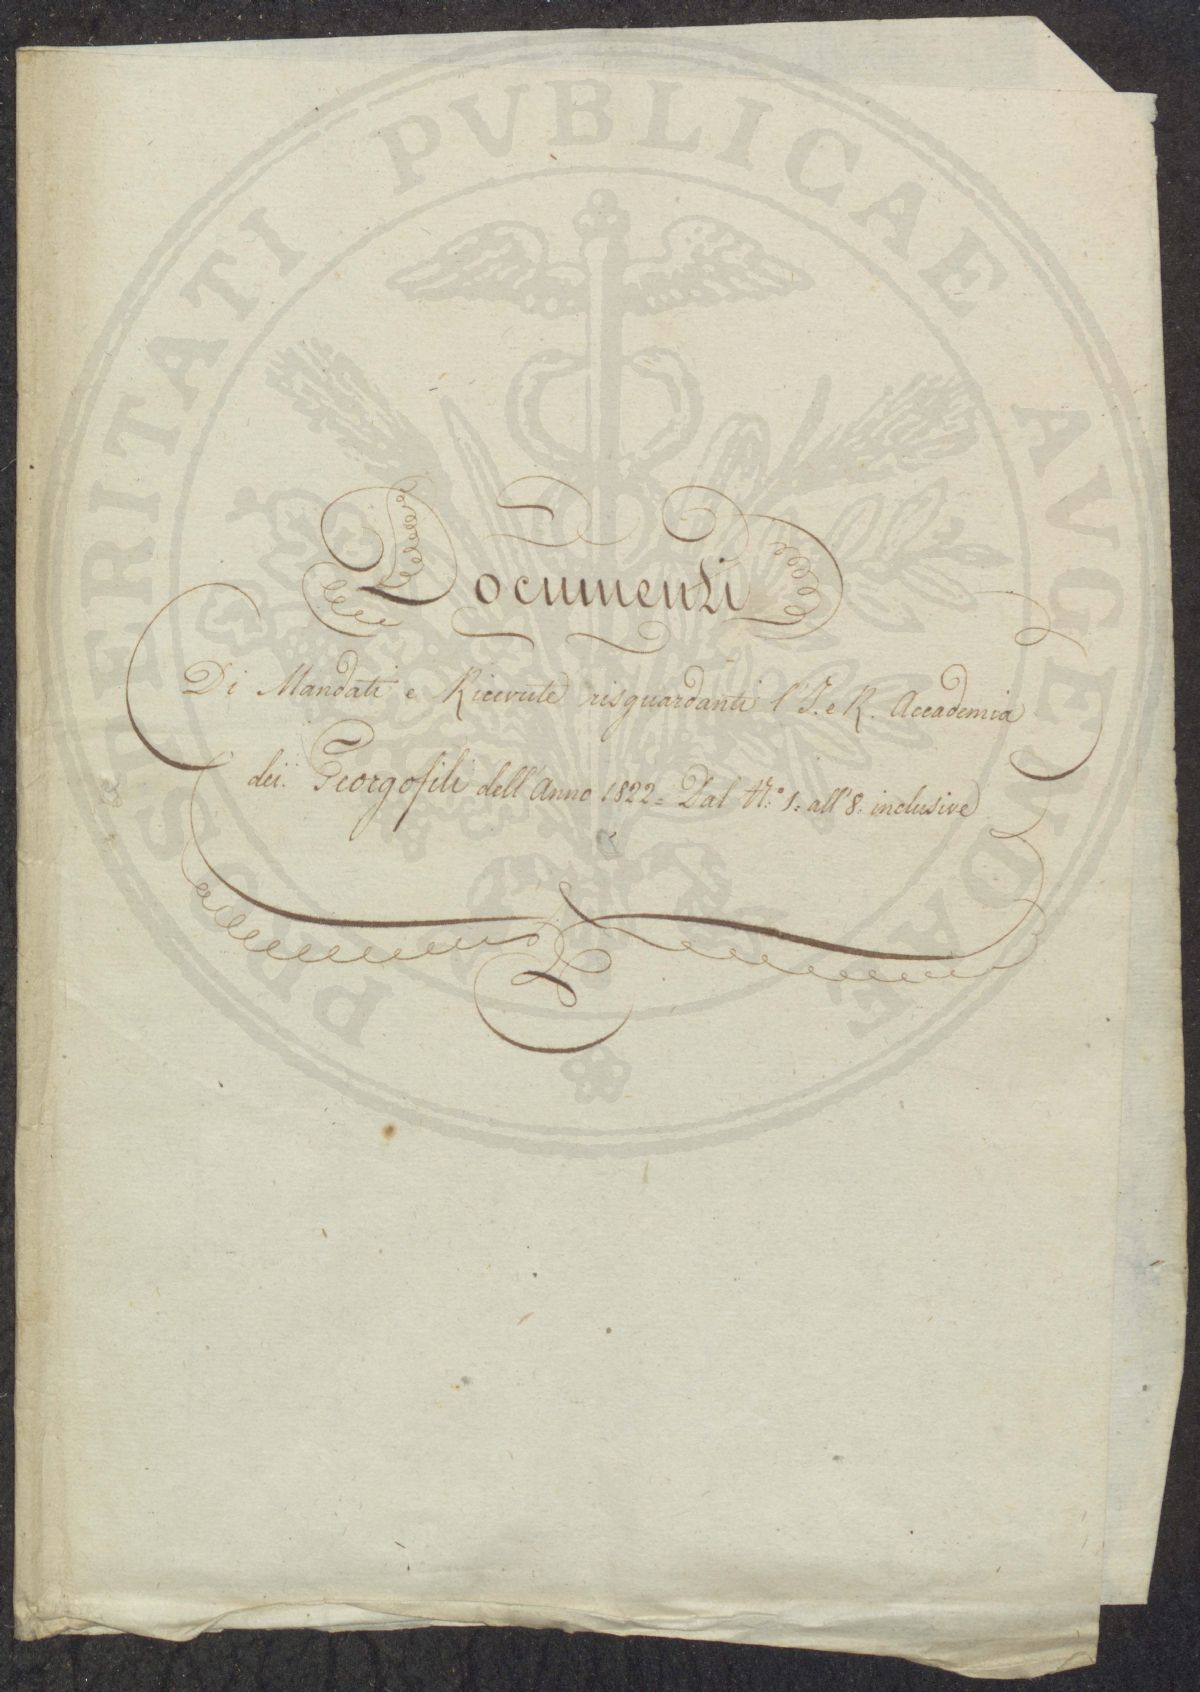 PROSPERITATI PVBLICAE AVGENDAE
Documenti
Di Mandati e Ricevute risguardanti l'I. e R. Accademia
dei Georgofili dell'Anno 1822 = Dal N.° 1. all' 8. inclusive